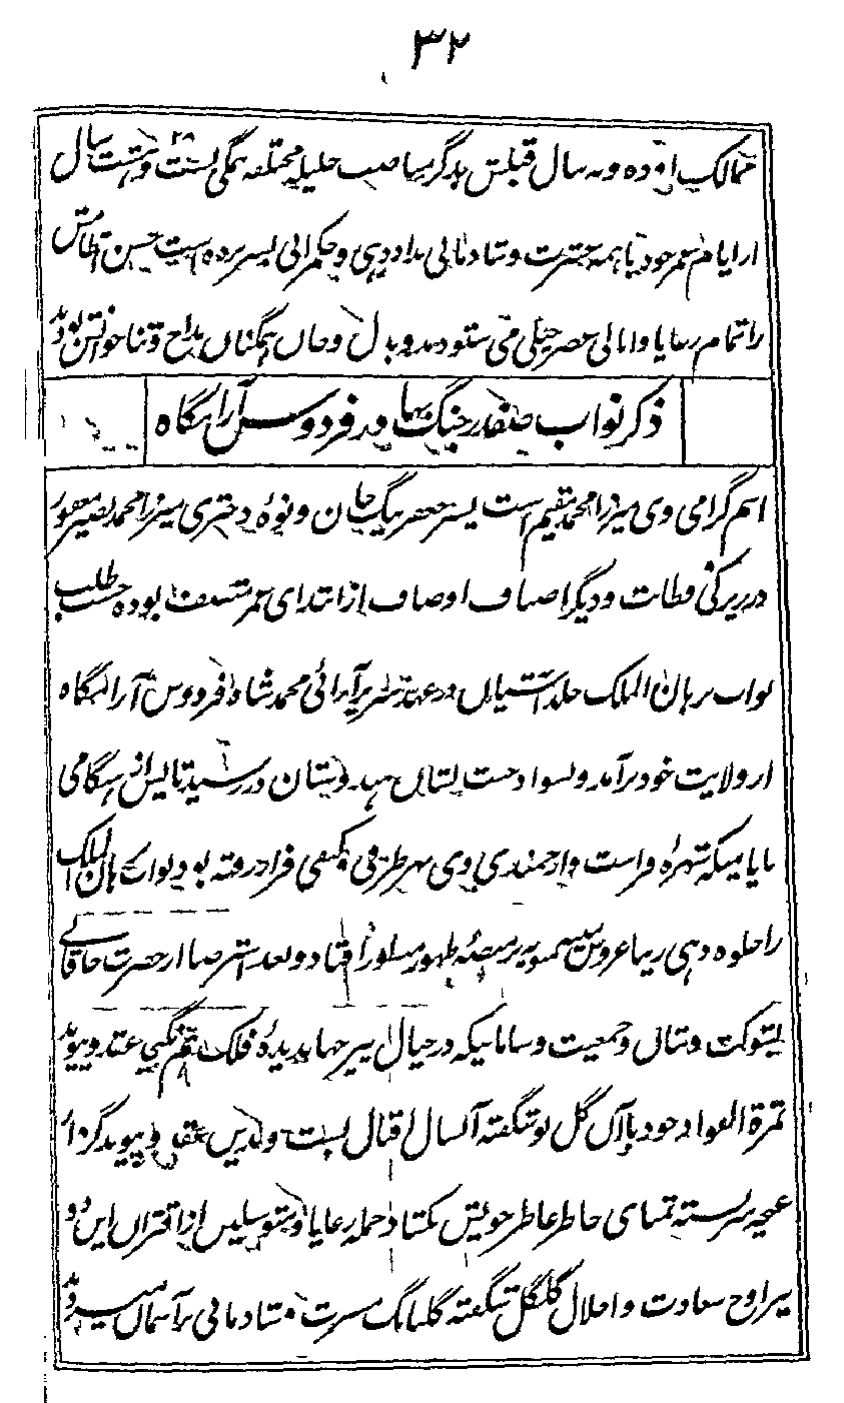 ۳۲
ممالک اوده و نه سال قبلش بدگر مناصب جلیله مختلفه همگی بست و هشت سال ۲۸
از ایام عمر خود با همه عشرت و شادمانی بداد دهی و حکمرانی بسر برده است حسن انتظامش
را تمام رعایا و اهالی عصر خیلی می ستودند و بدل و جان همگنان مداح و ثنا خوانش بودند
ذکر نواب صفدر جنگ بهادر فردوس آرامگاه
اسم گرامی وی میرزا محمد مقیم است پسر جعفر بیگ خان و نوهٔ دختری میرزا محمد نصیر مغفور
در زیرکی و فطانت و دیگر اصناف اوصاف از ابتدای عمر متصف بوده حسب طلب
نواب برهان الملک خلد آشیان در عهد سریر آرائی محمد شاه فردوس آرامگاه
از ولایت خود برآمد و بسواد جنت بستان هندوستان در رسید تا پس از هنگامی
با یا میکه شهرهٔ فراست و ارجمندی وی بهر طرفی و کنفی فرا رفته بود نواب برهان الملک
را جلوه دهی زیبا عروس بر منصهٔ ظهور منظور افتاد و بعد استرضا از حضرت خاقانی
بشوکت و شان و جمعیت و سامانیکه در خیال پیر جهاندیدهٔ فلک هم نگنجد عقد و پیوند
ثمرة الفواد خود با آن گل نو شگفته آنسال اقبال بست و بدین عقد و پیوند گره از
غنچه سربسته تمنای خاطر عاطر خویش بکشاد جمله رعایا و متوسلین از اقتران این دو
نیر اوج سعادت و اجلال گل گل شگفته گلبانگ مسرت و شادمانی بر آسمان میزدند